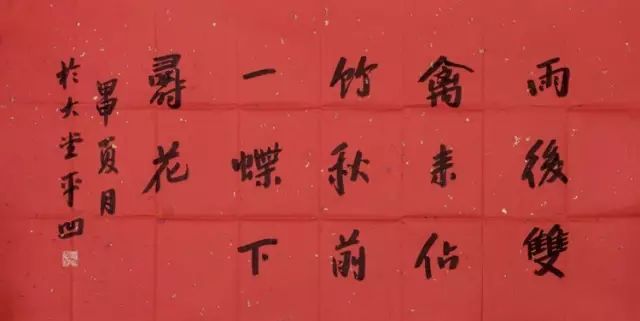 雨後雙
禽來佔
竹秋前
一蝶下
尋花
甲夏月
於大堂平